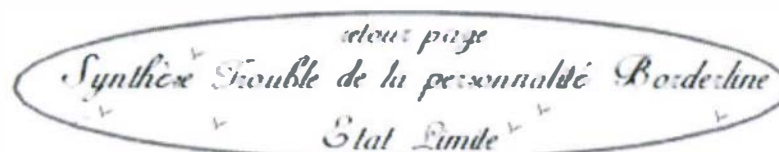 retour page
Synthèse Trouble de la personnalité Borderline
Etat Limite